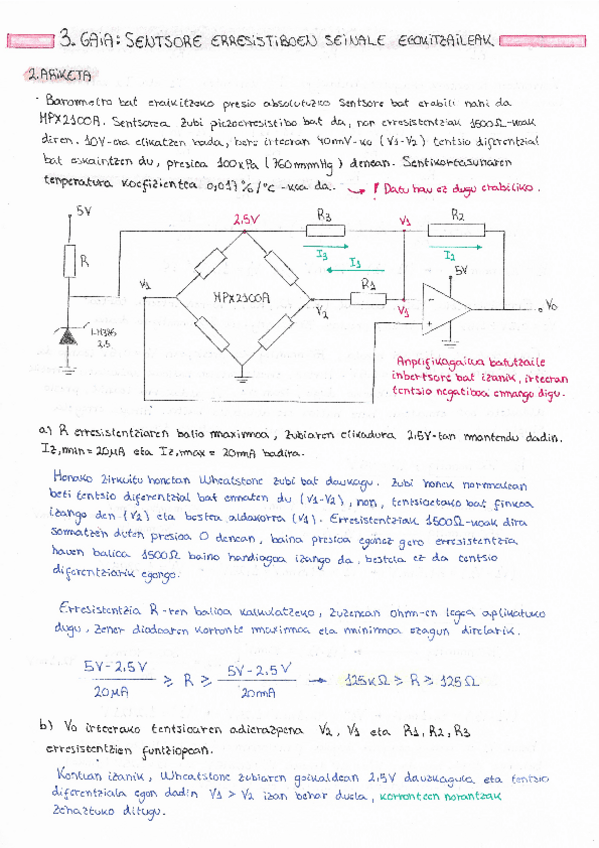 3. GAIA: SENTSORE ERRESISTIBOEN SEINALE EGOKITZAILEAK
2. ARIKETA
· Barometro bat eraikitzeko presio absolutuzko sentsore bat erabili nahi da
MPX2100A. Sentsorea zubi piezoerresistibo bat da, non erresistentziak 1500Ω-koak
diren. 10V-ra elikatzen bada, bere irteeran 40mV-ko (V1-V2) tentsio diferentzial
bat eskaintzen du, presioa 100kPa (760mmHg) denean. Sentikortasunaren
tenperatura koefizientea 0,017%/°C -koa da. → ! Datu hau ez dugu erabiliko.
5V
2.5V
R3
V1
R2
R
I3
I1
I2
5V
V1
MPX2100A
V2
R1
V1
-
+
Vo
LM336
2.5
Anplifikagailua batutzaile
inbertsore bat izanik, irteeran
tentsio negatiboa emango digu.
a) R erresistentziaren balio maximoa, zubiaren elikadura 2,5V-tan mantendu dadin.
Iz,min = 20μA eta Iz,max = 20mA badira.
Honako zirkuitu honetan Wheatstone zubi bat daukagu. Zubi honek normalean
beti tentsio diferentzial bat ematen du (V1-V2), non, tentsioetako bat finkoa
izango den (V2) eta bestea aldakorra (V1). Erresistentziak 1500Ω-koak dira
somatzen duten presioa 0 denean, baina presioa eginez gero erresistentzia
hauen balioa 1500Ω baino handiagoa izango da, bestela ez da tentsio
diferentziarik egongo.
Erresistentzia R-ren balioa kalkulatzeko, zuzenean ohm-en legea aplikatuko
dugu, zener diodoaren korronte maximoa eta minimoa ezagun direlarik.
5V-2,5V / 20μA ≥ R ≥ 5V-2,5V / 20mA → 125kΩ ≥ R ≥ 125Ω
b) Vo irteerako tentsioaren adierazpena V2, V1 eta R1, R2, R3
erresistentzien funtziopean.
Kontuan izanik, Wheatstone zubiaren goikaldean 2,5V dauzkagula eta tentsio
diferentziala egon dadin V1 > V2 izan behar duela, korronteen norantzak
zehaztuko ditugu.